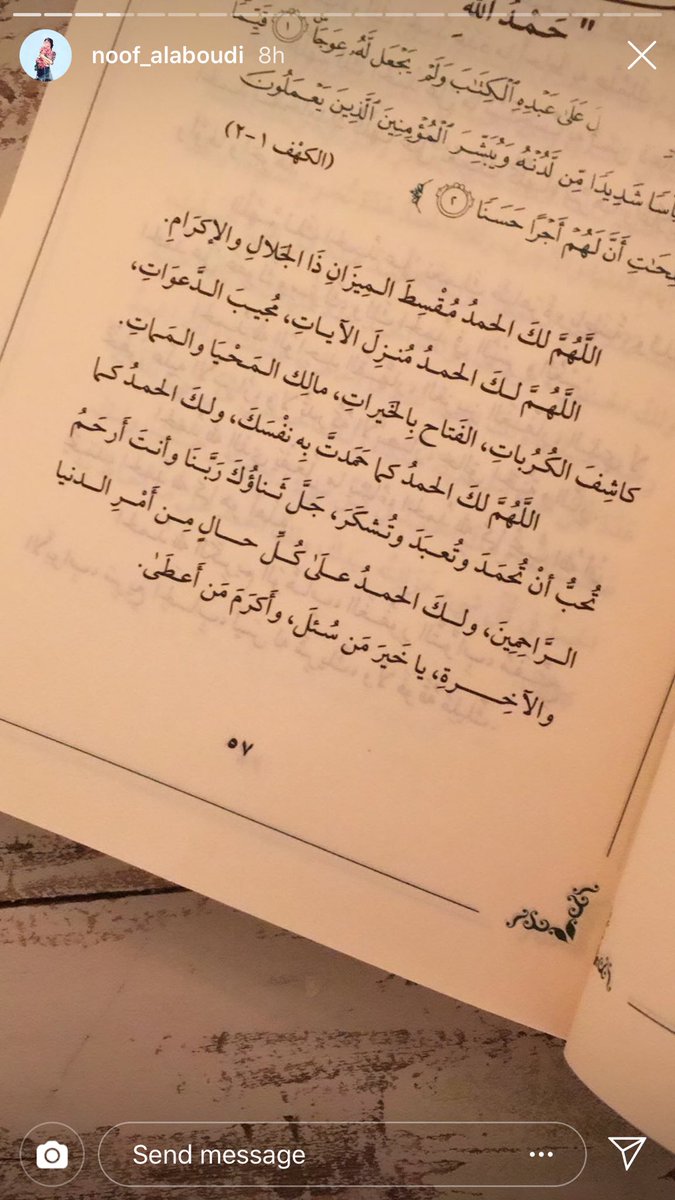 noof_alaboudi 8h
" حَمْدُ اللهِ
١ قَيِّمًا
عَلَىٰ عَبْدِهِ ٱلْكِتَٰبَ وَلَمْ يَجْعَل لَّهُۥ عِوَجَا
بَأْسًا شَدِيدًا مِّن لَّدُنْهُ وَيُبَشِّرَ ٱلْمُؤْمِنِينَ ٱلَّذِينَ يَعْمَلُونَ
أَنَّ لَهُمْ أَجْرًا حَسَنًا ٢ ﴾
(الكهْف ١-٢)
اللَّهُمَّ لكَ الحمدُ مُقْسِطَ المِيزَانِ ذَا الجَلالِ والإكرَامِ.
اللَّهُمَّ لكَ الحمدُ مُنزِلَ الآياتِ، مُجيبَ الدَّعوَاتِ،
كاشِفَ الكُرُباتِ، الفَتاح بِالخَيراتِ، مالِك المَحْيَا والمَماتِ.
اللَّهُمَّ لكَ الحمدُ كما حَمَدتَّ بِه نفْسَكَ، ولكَ الحمدُ كما
تُحبُّ أنْ تُحْمَدَ وتُعبَدَ وتُشكَرَ، جَلَّ ثَناؤُكَ رَبَّنَا وأنتَ أَرحَمُ
الرَّاحِمِينَ، ولكَ الحمدُ علَىٰ كُلِّ حالٍ مِن أَمْرِ الدنيا
والآخِرةِ، يا خَيرَ مَن سُئلَ، وأَكرَمَ مَن أَعطَىٰ.
٥٧
Send message